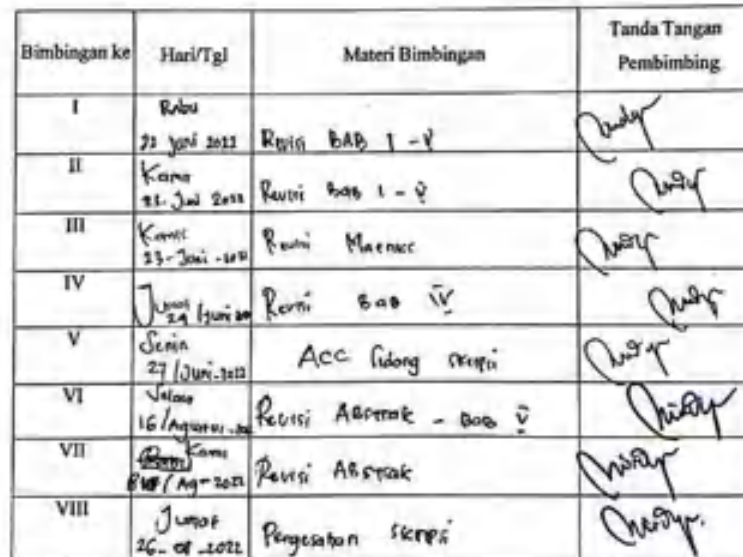 Bimbingan ke Hari/Tgl Materi Bimbingan Tanda Tangan Pembimbing
I Rabu
22 Juni 2022 Revisi BAB I - V
II Kamis
Juni 2022 Revisi Bab I - V
III Kamis
23-Juni-2022 Revisi
IV Jumat
24/Juni Revisi Bab IV
V Senin
27/Juni-2022 ACC Sidang skripsi
VI Selasa
16/Agustus Revisi Abstrak - Bab V
VII Kamis
/Ag-2022 Revisi Abstrak
VIII Jumat
26-08-2022 Pengesahan Skripsi